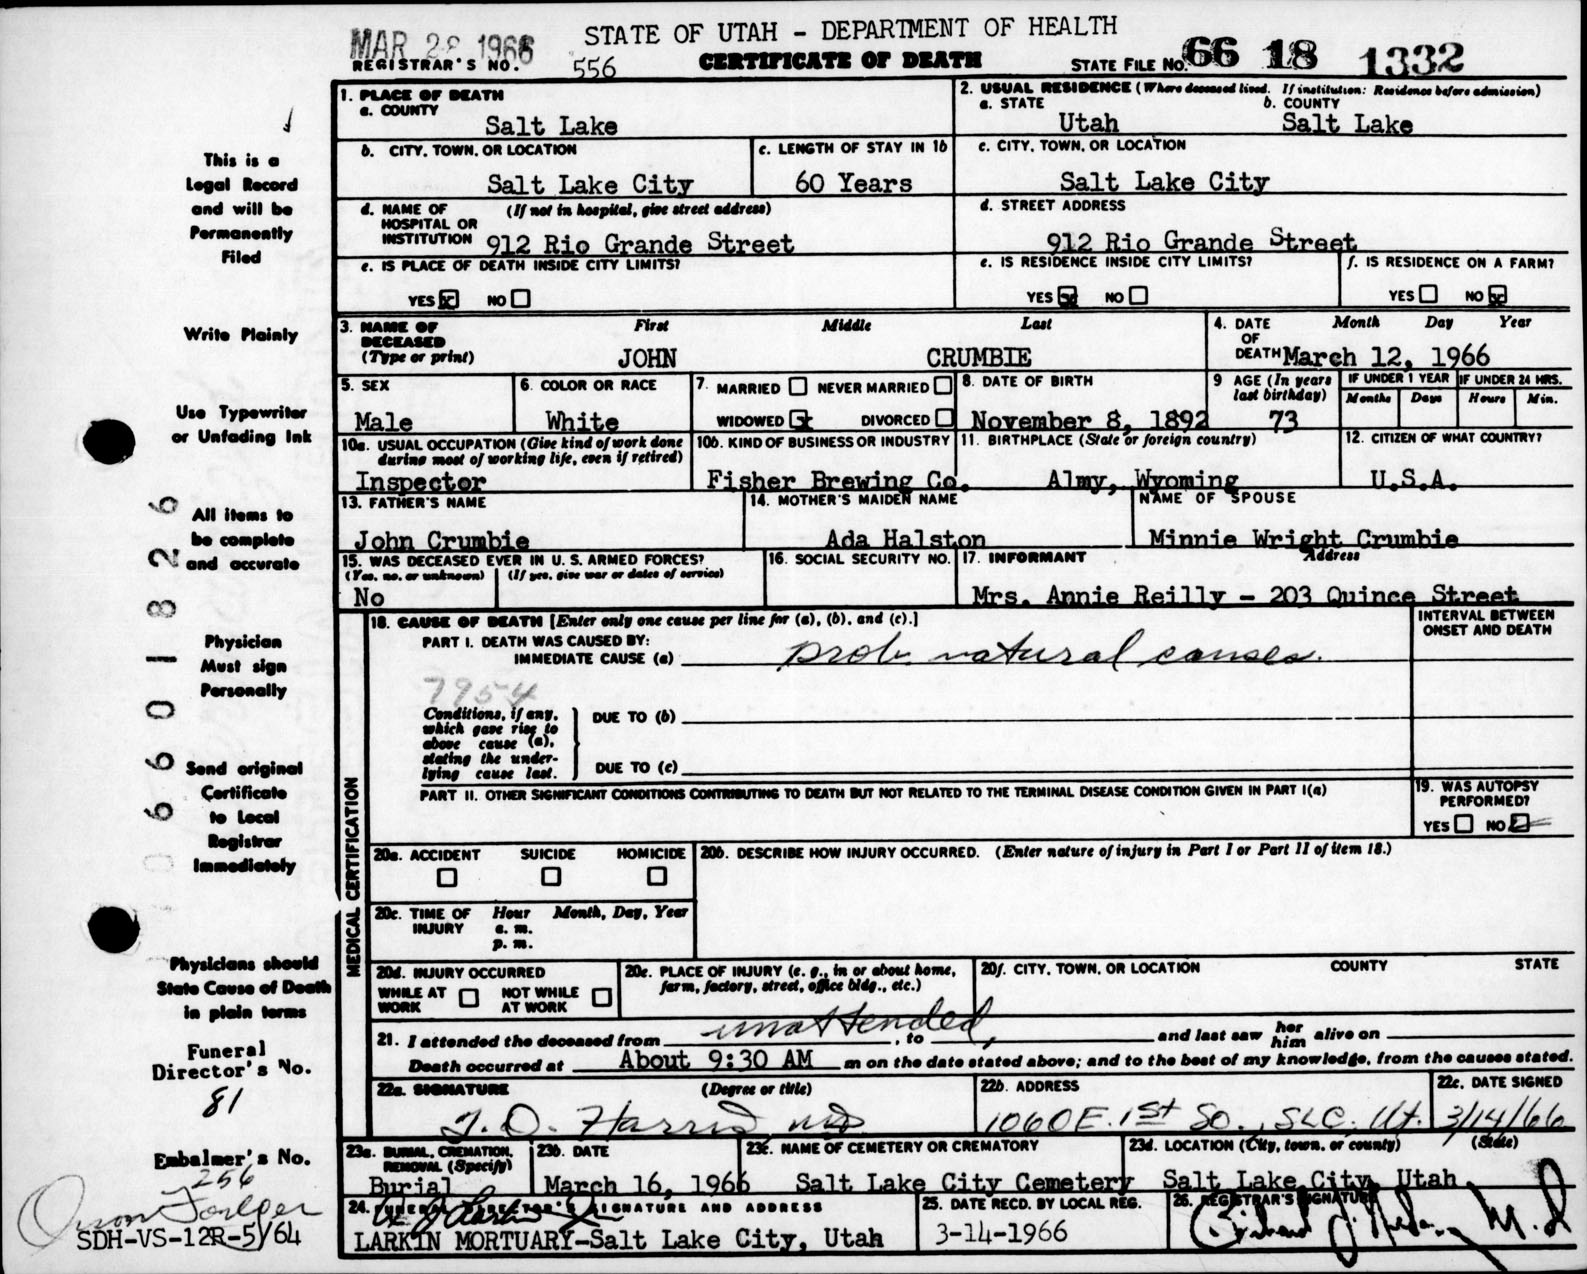 MAR 28 1966
STATE OF UTAH - DEPARTMENT OF HEALTH
REGISTRAR'S NO. 556
CERTIFICATE OF DEATH
STATE FILE NO. 66 18 1332
1. PLACE OF DEATH
a. COUNTY
Salt Lake
2. USUAL RESIDENCE (Where deceased lived. If institution: Residence before admission)
a. STATE b. COUNTY
Utah Salt Lake
b. CITY, TOWN, OR LOCATION
Salt Lake City
c. LENGTH OF STAY IN 1b
60 Years
c. CITY, TOWN, OR LOCATION
Salt Lake City
d. NAME OF HOSPITAL OR INSTITUTION (If not in hospital, give street address)
912 Rio Grande Street
d. STREET ADDRESS
912 Rio Grande Street
e. IS PLACE OF DEATH INSIDE CITY LIMITS?
YES x NO
e. IS RESIDENCE INSIDE CITY LIMITS?
YES x NO
f. IS RESIDENCE ON A FARM?
YES NO x
3. NAME OF DECEASED (Type or print)
First Middle Last
JOHN CRUMBIE
4. DATE OF DEATH
Month Day Year
March 12, 1966
5. SEX
Male
6. COLOR OR RACE
White
7. MARRIED NEVER MARRIED
WIDOWED x DIVORCED
8. DATE OF BIRTH
November 8, 1892
9 AGE (In years last birthday)
73
IF UNDER 1 YEAR IF UNDER 24 HRS.
Months Days Hours Min.
10a. USUAL OCCUPATION (Give kind of work done during most of working life, even if retired)
Inspector
10b. KIND OF BUSINESS OR INDUSTRY
Fisher Brewing Co.
11. BIRTHPLACE (State or foreign country)
Almy, Wyoming
12. CITIZEN OF WHAT COUNTRY?
U.S.A.
13. FATHER'S NAME
John Crumbie
14. MOTHER'S MAIDEN NAME
Ada Halston
NAME OF SPOUSE
Minnie Wright Crumbie
15. WAS DECEASED EVER IN U. S. ARMED FORCES?
(Yes, no, or unknown) (If yes, give war or dates of service)
No
16. SOCIAL SECURITY NO.
17. INFORMANT Address
Mrs. Annie Reilly - 203 Quince Street
MEDICAL CERTIFICATION
18. CAUSE OF DEATH [Enter only one cause per line for (a), (b), and (c).]
INTERVAL BETWEEN ONSET AND DEATH
PART I. DEATH WAS CAUSED BY:
IMMEDIATE CAUSE (a) prob. natural causes.
7954
Conditions, if any, which gave rise to above cause (a), stating the underlying cause last.
DUE TO (b)
DUE TO (c)
PART II. OTHER SIGNIFICANT CONDITIONS CONTRIBUTING TO DEATH BUT NOT RELATED TO THE TERMINAL DISEASE CONDITION GIVEN IN PART I(a)
19. WAS AUTOPSY PERFORMED?
YES NO
20a. ACCIDENT SUICIDE HOMICIDE
20b. DESCRIBE HOW INJURY OCCURRED. (Enter nature of injury in Part I or Part II of item 18.)
20c. TIME OF INJURY Hour Month, Day, Year
a. m.
p. m.
20d. INJURY OCCURRED
WHILE AT WORK NOT WHILE AT WORK
20e. PLACE OF INJURY (e. g., in or about home, farm, factory, street, office bldg., etc.)
20f. CITY, TOWN, OR LOCATION COUNTY STATE
21. I attended the deceased from unattended, to and last saw her him alive on
Death occurred at About 9:30 AM m on the date stated above; and to the best of my knowledge, from the causes stated.
22a. SIGNATURE (Degree or title)
J. O. Harris MD
22b. ADDRESS
1060 E. 1st So., SLC, Ut.
22c. DATE SIGNED
3/14/66
23a. BURIAL, CREMATION, REMOVAL (Specify)
Burial
23b. DATE
March 16, 1966
23c. NAME OF CEMETERY OR CREMATORY
Salt Lake City Cemetery
23d. LOCATION (City, town, or county) (State)
Salt Lake City, Utah
24. FUNERAL DIRECTOR'S SIGNATURE AND ADDRESS
LARKIN MORTUARY-Salt Lake City, Utah
25. DATE RECD. BY LOCAL REG.
3-14-1966
26. REGISTRAR'S SIGNATURE
M.D
This is a
Legal Record
and will be
Permanently
Filed
Write Plainly
Use Typewriter
or Unfading Ink
All items to
be complete
and accurate
Physician
Must sign
Personally
Send original
Certificate
to Local
Registrar
Immediately
Physicians should
State Cause of Death
in plain terms
Funeral
Director's No.
81
Embalmer's No.
256
SDH-VS-12R-5/64
06601826